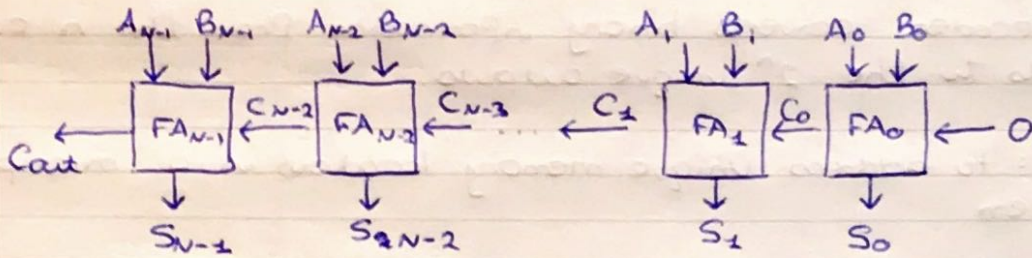 A_{N-1} B_{N-1} A_{N-2} B_{N-2} A_1 B_1 A_0 B_0
FA_{N-1} C_{N-2} FA_{N-2} C_{N-3} ... C_1 FA_1 C_0 FA_0 0
Cout
S_{N-1} S_{N-2} S_1 S_0